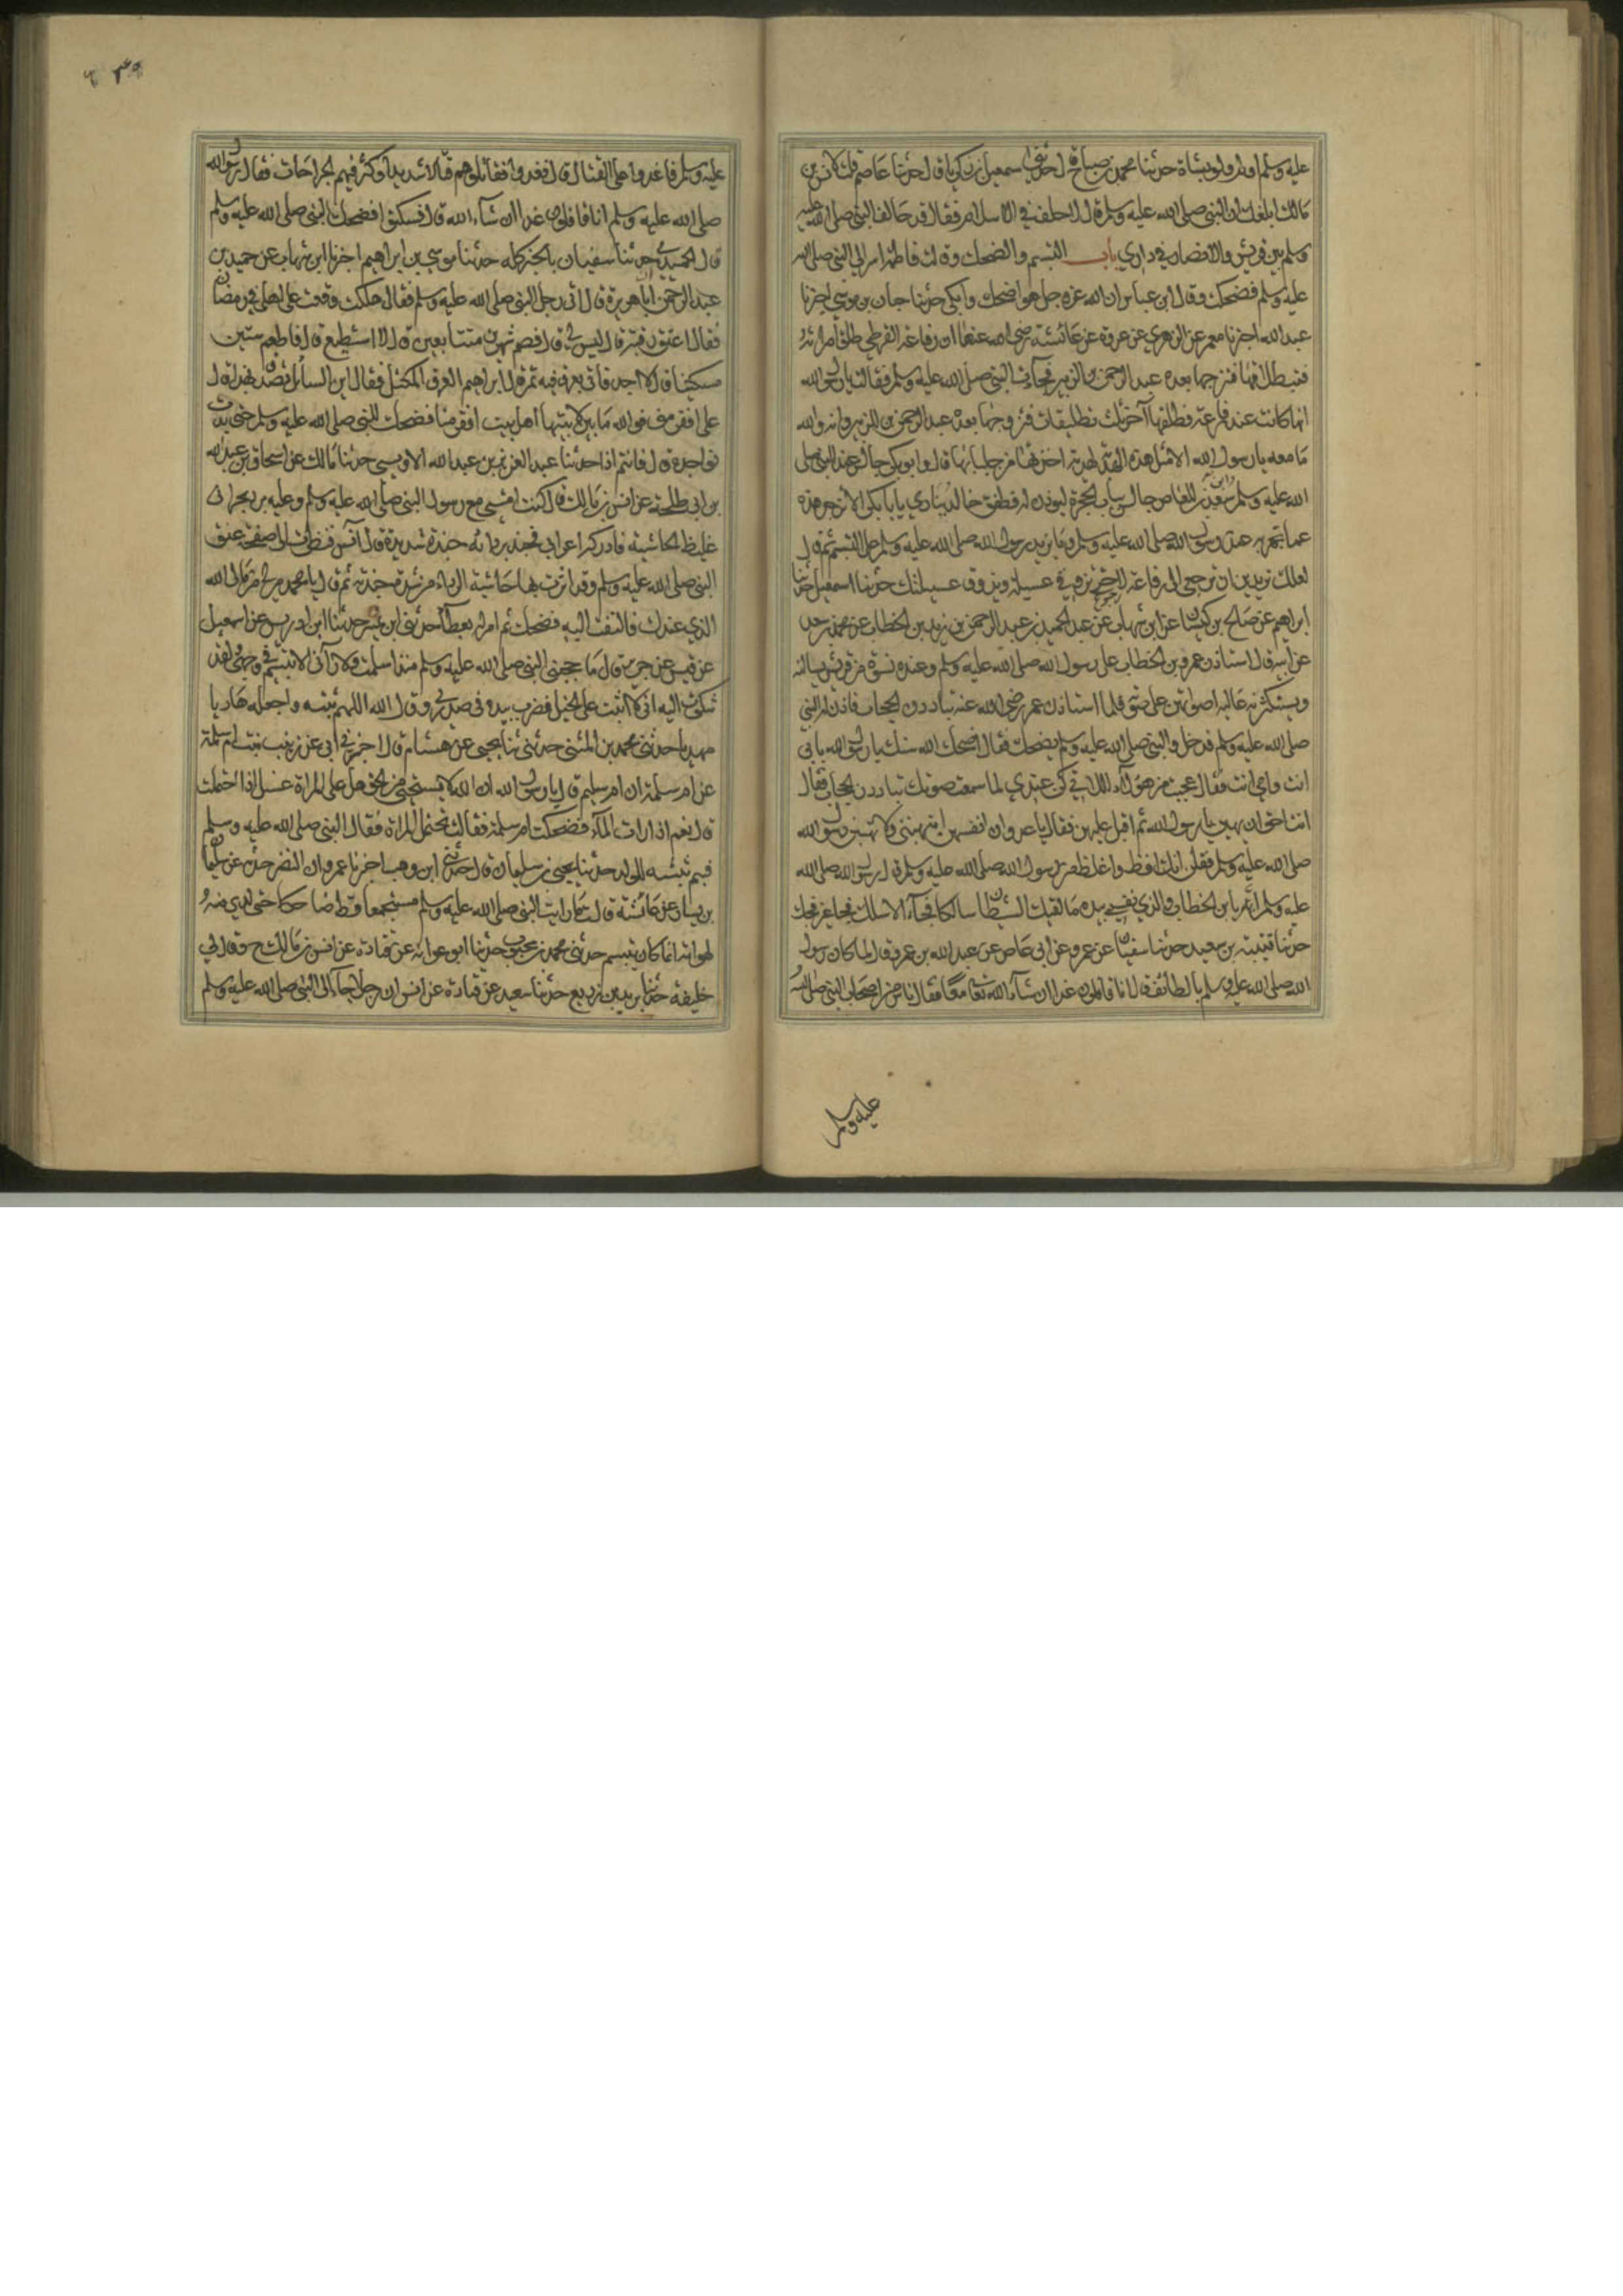 عليه وسلم اولم ولو بشاة حدثنا محمد بن صباح قال حدثنا اسمعيل بن زكريا قال حدثنا عاصم قلت لانس بن
مالك ابلغك ان النبي صلى الله عليه وسلم قال لا حلف في الاسلام فقال قد حالف النبي صلى الله عليه
وسلم بين قريش والانصار في داري باب التبسم والضحك وقالت فاطمة اسر الي النبي صلى الله
عليه وسلم فضحكت وقال ابن عباس ان الله عز وجل هو اضحك وابكى حدثنا حبان بن موسي اخبرنا
عبد الله اخبرنا معمر عن الزهري عن عروة عن عائشة رضي الله عنها ان رفاعة القرظي طلق امراته
فبت طلاقها فتزوجها بعده عبد الرحمن بن الزبير فجاءت النبي صلى الله عليه وسلم فقالت يا رسول الله
انها كانت عند رفاعة فطلقها آخر ثلث تطليقات فتزوجها بعده عبد الرحمن بن الزبير وانه والله
ما معه يا رسول الله الا مثل هذه الهدبة لهدبة اخذتها من جلبابها قال وابو بكر جالس عند النبي صلى
الله عليه وسلم وابن سعيد بن العاص جالس بباب الحجرة ليوذن له فطفق خالد ينادي يا ابا بكر الا تزجر هذه
عما تجهر به عند رسول الله صلى الله عليه وسلم وما يزيد رسول الله صلى الله عليه وسلم على التبسم ثم قال
لعلك تريدين ان ترجعي الى رفاعة لا حتى تذوقي عسيلته ويذوق عسيلتك حدثنا اسمعيل حدثنا
ابراهيم عن صالح بن كيسان عن ابن شهاب عن عبد الحميد بن عبد الرحمن بن زيد بن الخطاب عن محمد بن سعد
عن ابيه قال استاذن عمر بن الخطاب على رسول الله صلى الله عليه وسلم وعنده نسوة من قريش يسالنه
ويستكثرنه عالية اصواتهن على صوته فلما استاذن عمر رضي الله عنه تبادرن الحجاب فاذن له النبي
صلى الله عليه وسلم فدخل والنبي صلى الله عليه وسلم يضحك فقال اضحك الله سنك يا رسول الله بابي
انت وامي انت فقال عجبت من هؤلاء اللاتي كن عندي لما سمعن صوتك تبادرن الحجاب فقال
انت احق ان يهبن يا رسول الله ثم اقبل عليهن فقال يا عدوات انفسهن اتهبنني ولا تهبن رسول الله
صلى الله عليه وسلم فقلن انك افظ واغلظ من رسول الله صلى الله عليه وسلم قال رسول الله صلى الله
عليه وسلم ايه يا بن الخطاب والذي نفسي بيده ما لقيك الشيطان سالكا فجا الا سلك فجا غير فجك
حدثنا قتيبة بن سعيد حدثنا سفيان عن عمرو عن ابي العباس عن عبد الله بن عمر قال لما كان رسول
الله صلى الله عليه وسلم بالطائف قال انا قافلون غدا ان شاء الله تعالى فقال ناس من اصحاب النبي صلى الله
عليه وسلم
عليه وسلم فاغدوا على القتال قال فغدوا فقاتلوهم قتالا شديدا وكثر فيهم الجراحات فقال رسول الله
صلى الله عليه وسلم انا قافلون غدا ان شاء الله قال فسكتوا فضحك النبي صلى الله عليه وسلم
قال الحميدي حدثنا سفيان بالخبر كله حدثنا موسي بن ابراهيم اخبرنا ابن شهاب عن حميد بن
عبد الرحمن ان ابا هريرة قال اتى رجل النبي صلى الله عليه وسلم فقال هلكت وقعت على اهلي في رمضان
فقال اعتق رقبة قال ليس لي قال فصم شهرين متتابعين قال لا استطيع قال فاطعم ستين
مسكينا قال لا اجد فاتي بعرق فيه تمر قال ابراهيم العرق المكتل فقال اين السائل تصدق بهذا قال
على افقر مني فوالله ما بين لابتيها اهل بيت افقر منا فضحك النبي صلى الله عليه وسلم حتى بدت
نواجذه قال فانتم اذا حدثنا عبد العزيز بن عبد الله الاويسي حدثنا مالك عن اسحاق بن عبد الله
بن ابي طلحة عن انس بن مالك قال كنت امشي مع رسول النبي صلى الله عليه وسلم وعليه برد نجراني
غليظ الحاشية فادركه اعرابي فجبذ بردائه جبذة شديدة قال انس فنظرت الى صفحة عنق
النبي صلى الله عليه وسلم وقد اثرت بها حاشية الرداء من شدة جبذته ثم قال يا محمد مر لي من مال الله
الذي عندك فالتفت اليه فضحك ثم امر له بعطاء حدثني ابن نمير حدثنا ابن ادريس عن اسمعيل
عن قيس عن جرير قال ما حجبني النبي صلى الله عليه وسلم منذ اسلمت ولا رآني الا تبسم في وجهي ولقد
شكوت اليه اني لا اثبت على الخيل فضرب بيده في صدري وقال اللهم ثبته واجعله هاديا
مهديا حدثني محمد بن المثنى حدثني ثنا يحيى عن هشام قال اخبرني ابي عن زينب بنت ام سلمة
عن ام سلمة ان ام سليم قالت يا رسول الله ان الله لا يستحيي من الحق هل على المراة غسل اذا احتلمت
قال نعم اذا رات الماء فضحكت ام سلمة فقالت تحتلم المراة فقال النبي صلى الله عليه وسلم
فبم شبه الولد حدثنا يحيى بن سليمان قال حدثني ابن وهب اخبرنا عمرو ان النضر حدثه عن سليمان
بن يسار عن عائشة قالت ما رايت النبي صلى الله عليه وسلم مستجمعا قط ضاحكا حتى ارى منه
لهواته انما كان تبسم حدثني محمد بن محبوب حدثنا ابو عوانه عن قتادة عن انس بن مالك ح وقال لي
خليفة حدثنا يزيد بن زريع حدثنا سعيد عن قتادة عن انس ان رجلا جاء الى النبي صلى الله عليه وسلم